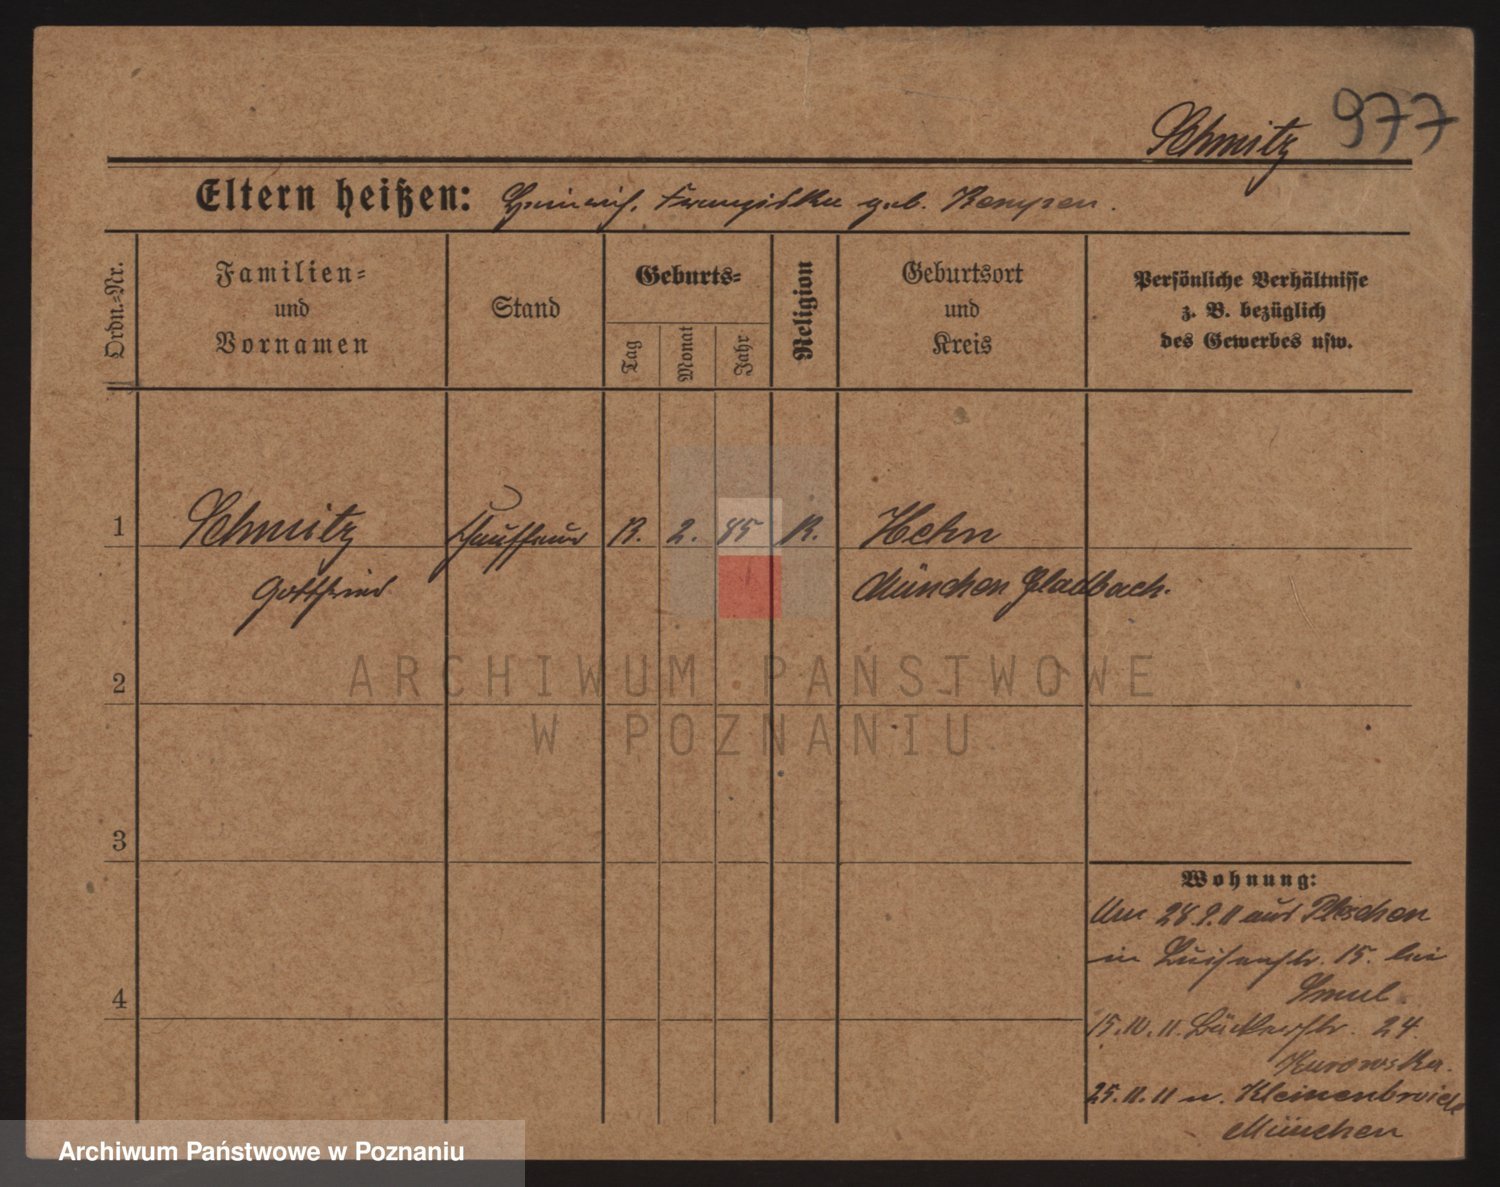 Schmitz 977
Eltern heißen: Heinrich, Franziska geb. Kempen.
Ordn.-Nr.
Familien-
und
Vornamen
Stand
Geburts-
Tag
Monat
Jahr
Religion
Geburtsort
und
Kreis
Persönliche Verhältnisse
z. B. bezüglich
des Gewerbes usw.
1 Schmitz Chauffeur 2. 85 K. Hehn
Gottfried München Gladbach.
2
3
4
ARCHIWUM PAŃSTWOWE
W POZNANIU
Wohnung:
28.9.11 aus Pleschen
in Luisenstr. 15. bei
15.10.11. Bäckerstr. 24
Kurowska.
25.11.11 n. Kleinenbroich
München
Archiwum Państwowe w Poznaniu